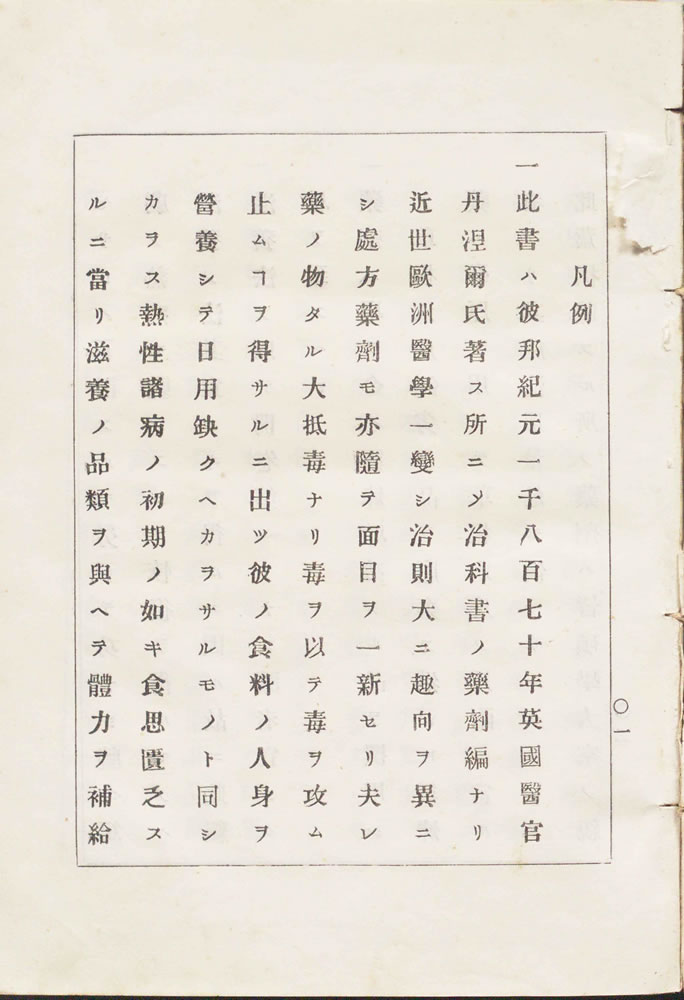 凡例
一此書ハ彼邦紀元一千八百七十年英國醫官
丹涅爾氏著ス所ニ〆治科書ノ藥劑編ナリ
近世歐洲醫學一變シ治則大ニ趣向ヲ異ニ
シ處方藥劑モ亦隨テ面目ヲ一新セリ夫レ
藥ノ物タル大抵毒ナリ毒ヲ以テ毒ヲ攻ム
止ムヿヲ得サルニ出ツ彼ノ食料ノ人身ヲ
營養シテ日用缺クヘカラサルモノト同シ
カラス熱性諸病ノ初期ノ如キ食思匱乏ス
ルニ當リ滋養ノ品類ヲ與ヘテ體力ヲ補給
〇一